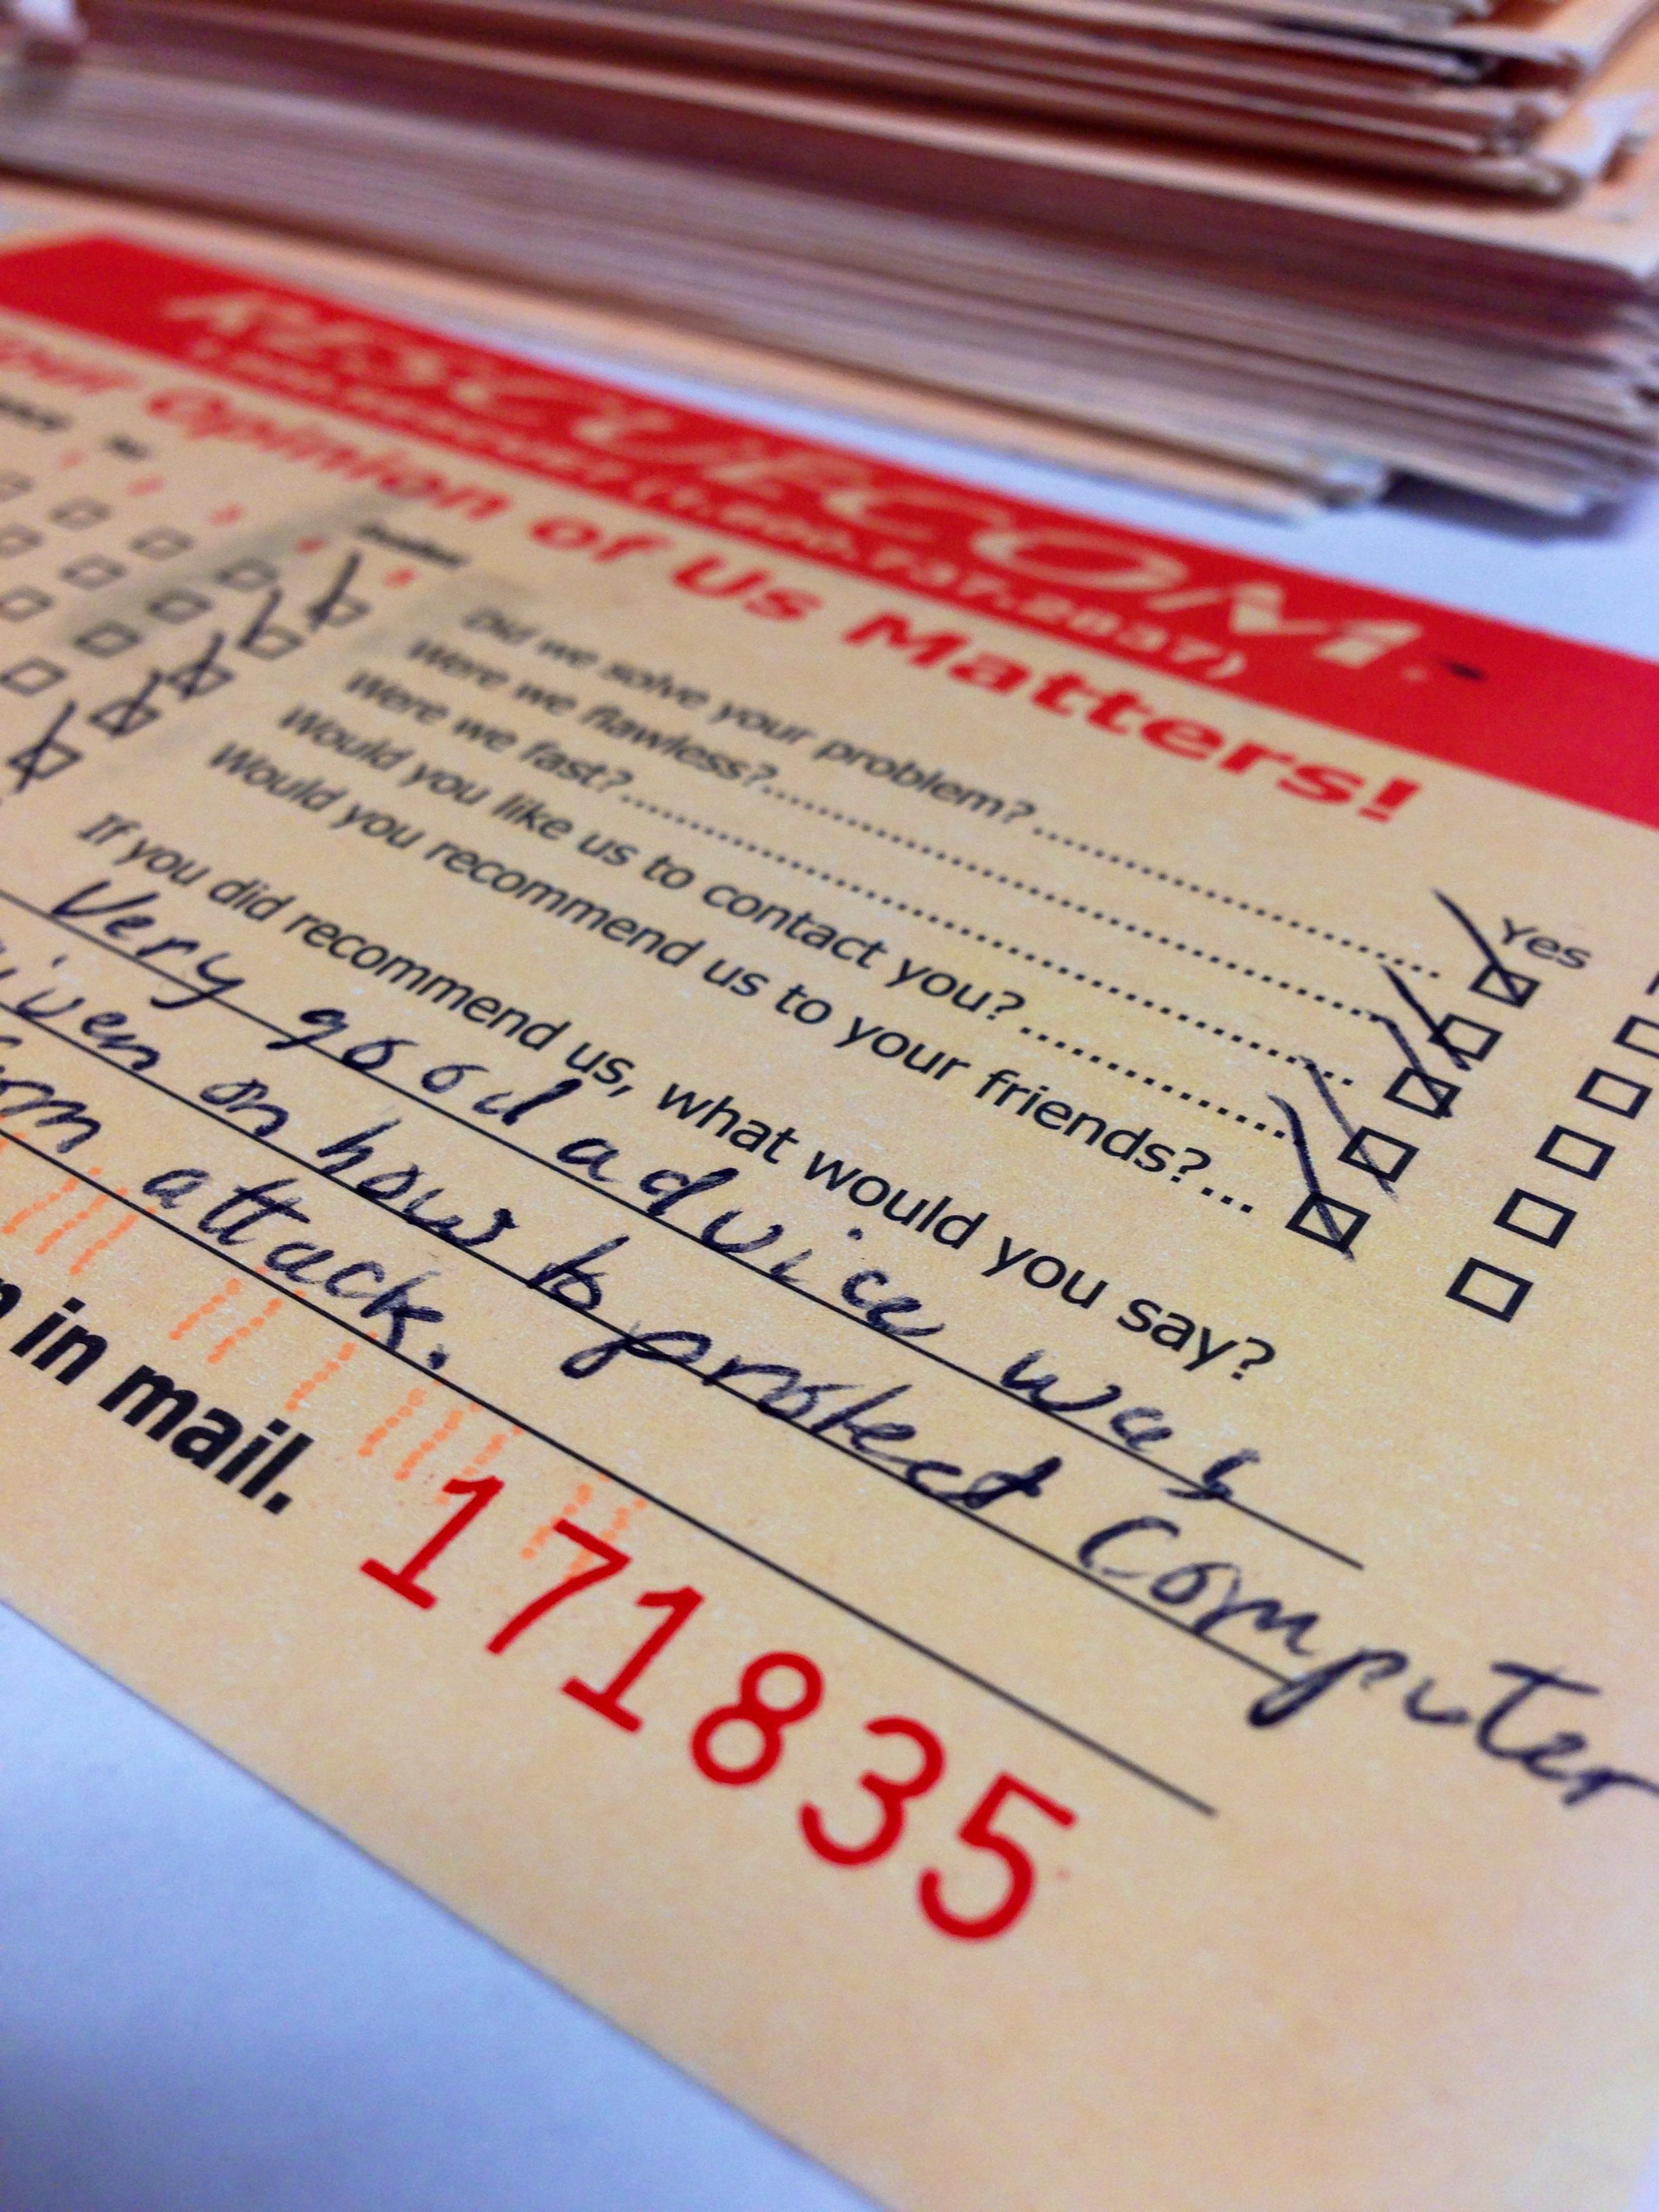 RESCUECOM
(1.800.737.2837)
Opinion of Us Matters!
Yes
Did we solve your problem?
Were we flawless?
Were we fast?
Would you like us to contact you?
Would you recommend us to your friends?
If you did recommend us, what would you say?
Very good advice was
on how to protect Computer
attack.
in mail.
171835